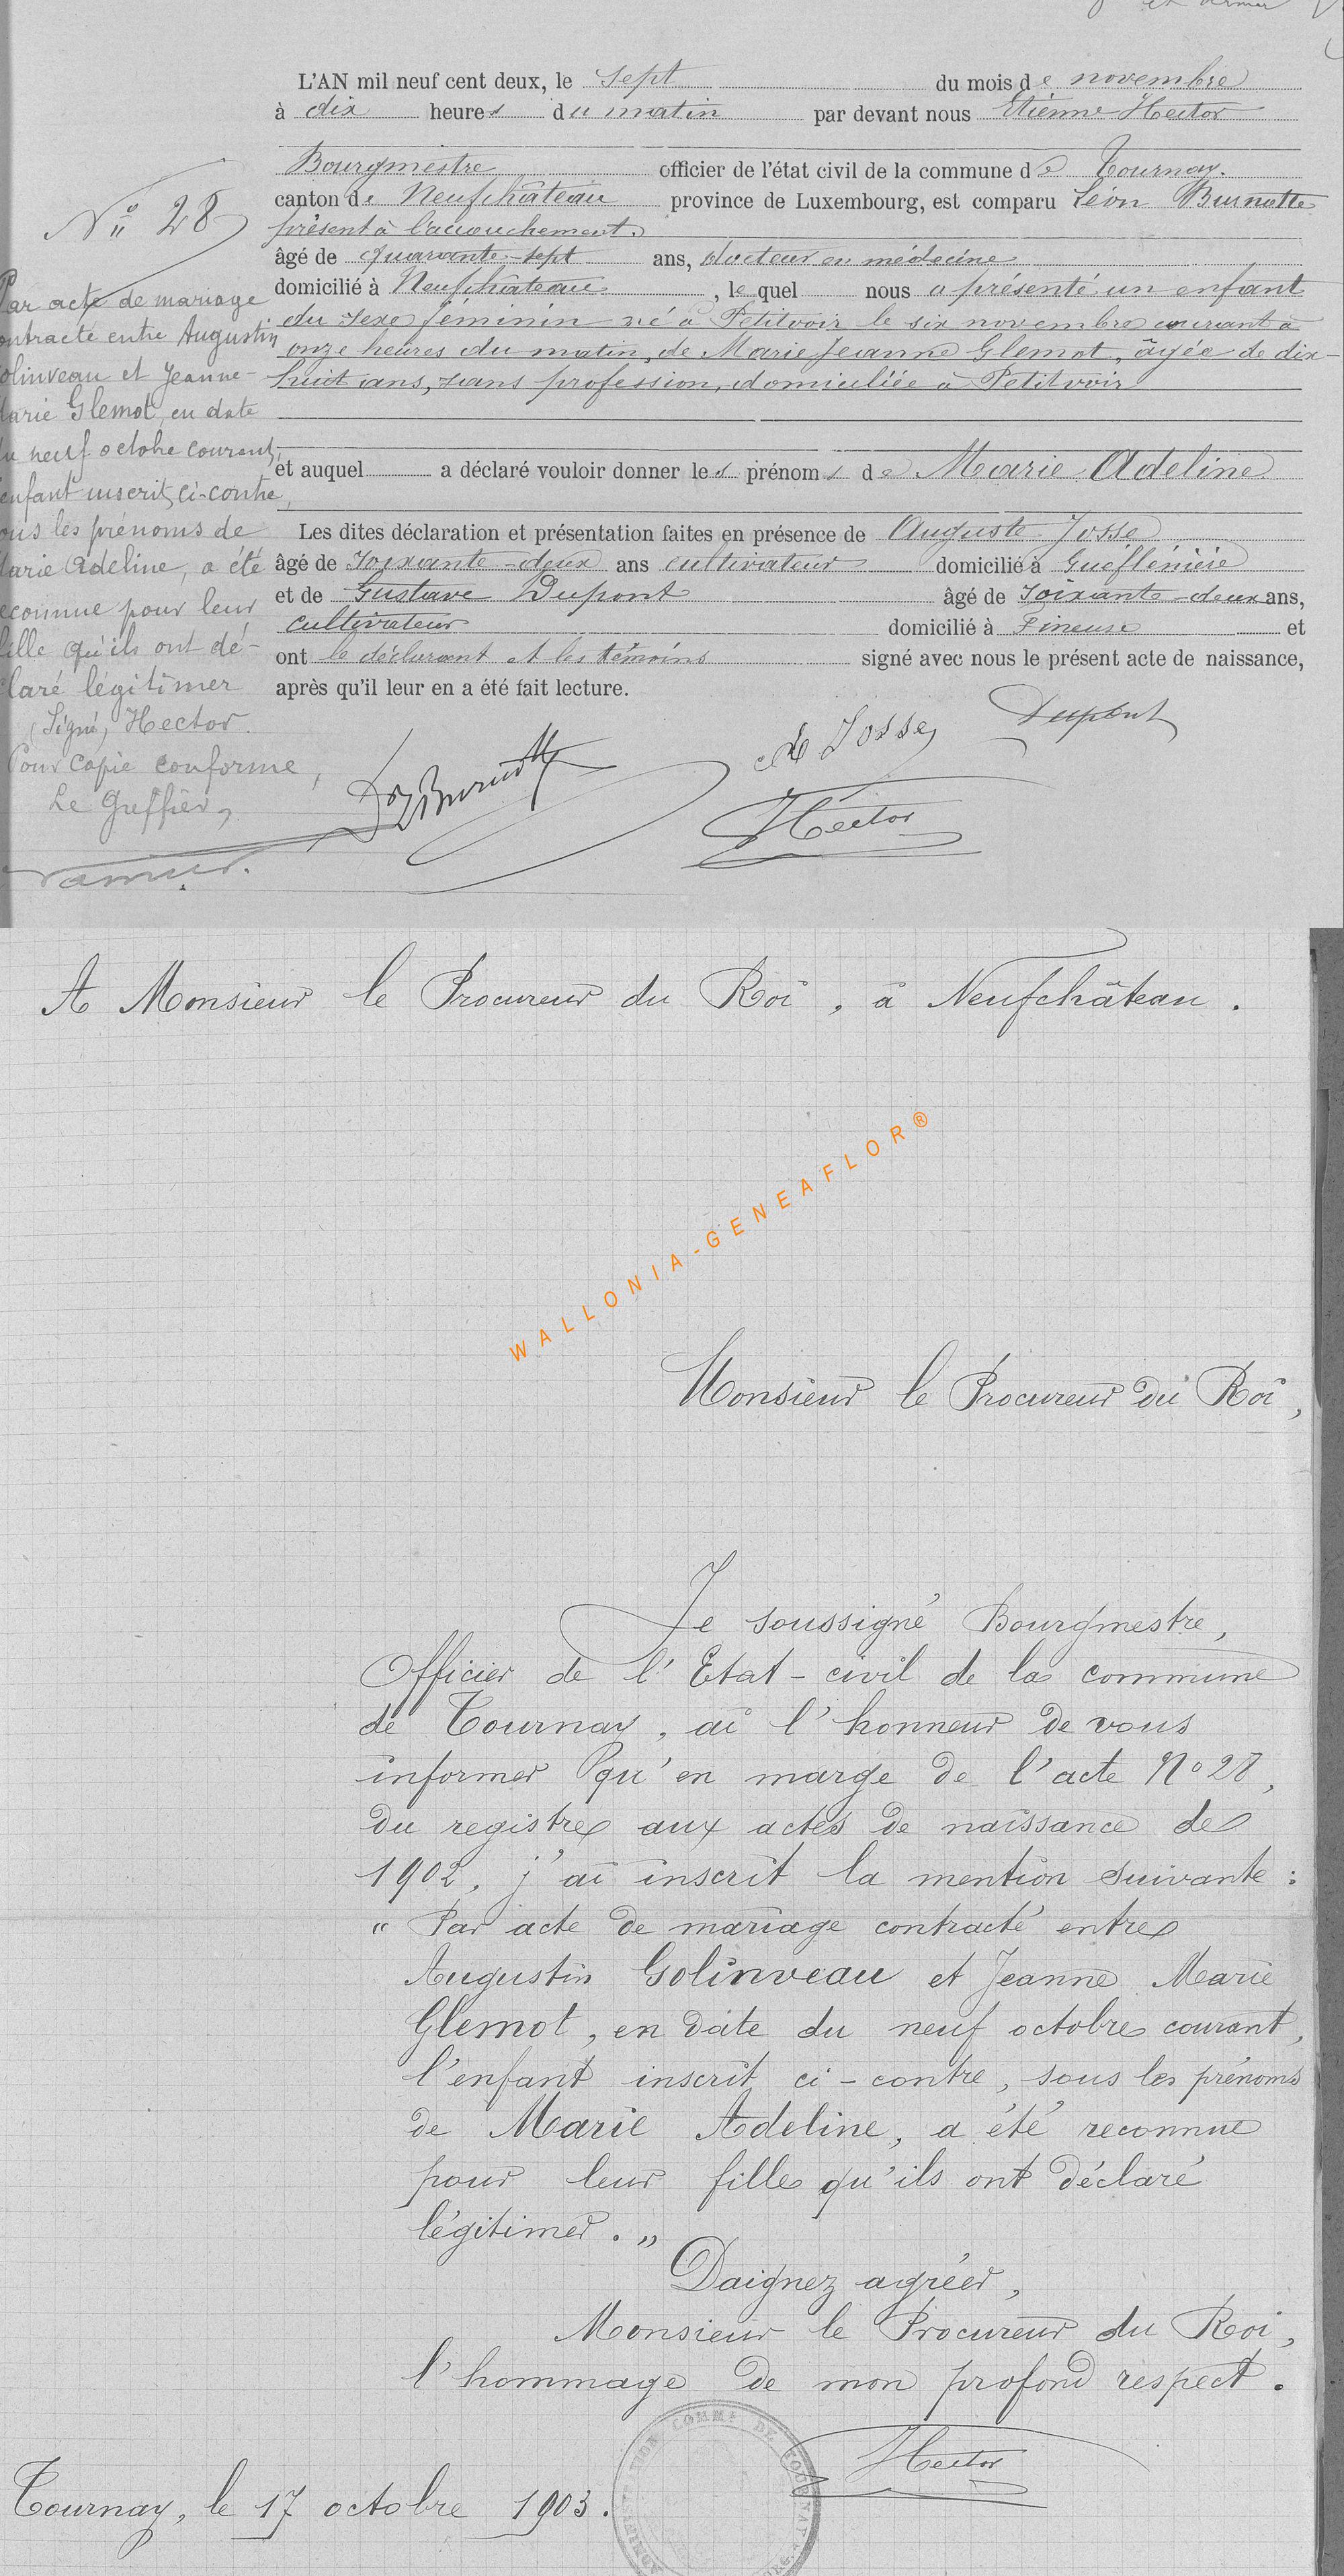 et dernier
L'AN mil neuf cent deux, le sept du mois de novembre
à dix heures du matin par devant nous Etienne Hector
Bourgmestre officier de l'état civil de la commune de Tournay.
canton de Neufchâteau province de Luxembourg, est comparu Léon Burnotte
présent à l'accouchement.
âgé de quarante-sept ans, docteur en médecine
domicilié à Neufchâteau, lequel nous a présenté un enfant
du sexe féminin né à Petitvoir le six novembre courant à
onze heures du matin, de Marie Jeanne Glemot, âgée de dix-
huit ans, sans profession, domiciliée à Petitvoir
et auquel a déclaré vouloir donner les prénoms de Marie Adeline
Les dites déclaration et présentation faites en présence de Auguste Josse
âgé de soixante-deux ans cultivateur domicilié à
et de Gustave Dupont âgé de soixante-deux ans,
cultivateur domicilié à Fineuse et
ont le déclarant et les témoins signé avec nous le présent acte de naissance,
après qu'il leur en a été fait lecture.
Burnotte
Josse
Dupont
Hector
N° 28
Par acte de mariage
contracté entre Augustin
olinveau et Jeanne-
arie Glemot, en date
u neuf octobre courant,
enfant inscrit ci-contre,
ous les prénoms de
arie Adeline, a été
econnue pour leur
fille qu'ils ont dé-
laré légitimer
(Signé) Hector.
Pour copie conforme,
Le Greffier,
A Monsieur le Procureur du Roi, à Neufchâteau.
WALLONIA-GENEAFLOR®
Monsieur le Procureur du Roi,
Je soussigné Bourgmestre,
Officier de l'Etat-civil de la commune
de Tournay, ai l'honneur de vous
informer qu'en marge de l'acte No 28,
du registre aux actes de naissance de
1902, j'ai inscrit la mention suivante :
" Par acte de mariage contracté entre
Augustin Golinveau et Jeanne Marie
Glemot, en date du neuf octobre courant,
l'enfant inscrit ci-contre, sous les prénoms
de Marie Adeline, a été reconnue
pour leur fille qu'ils ont déclaré
légitimer. "
Daignez agréer,
Monsieur le Procureur du Roi,
l'hommage de mon profond respect.
Hector
Tournay, le 17 octobre 1903.